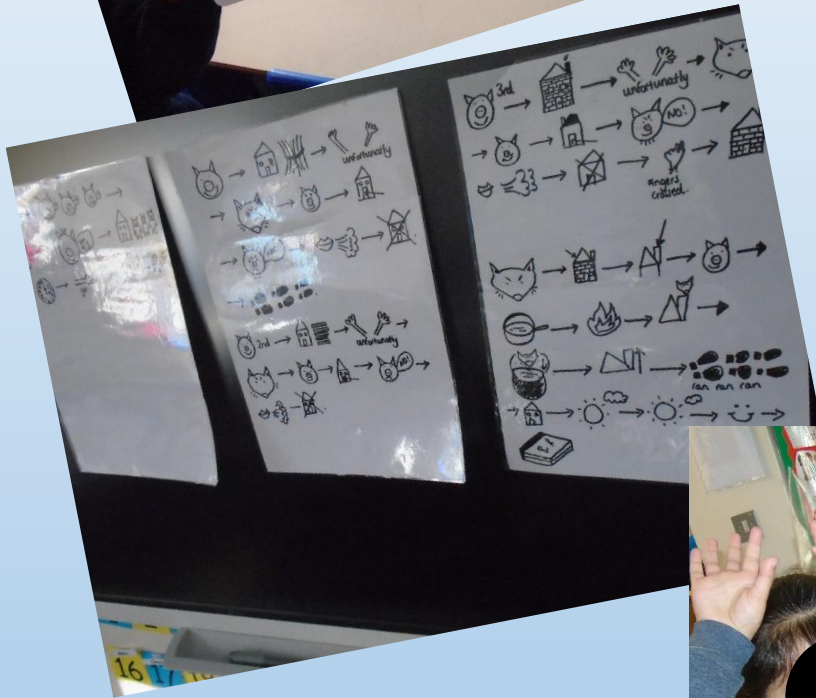 unfortunatly
NO!
2nd
unfortunatly
NO!
3rd
unfortunatly
NO!
fingers
crossed.
ran ran ran
The
End
16 17 18